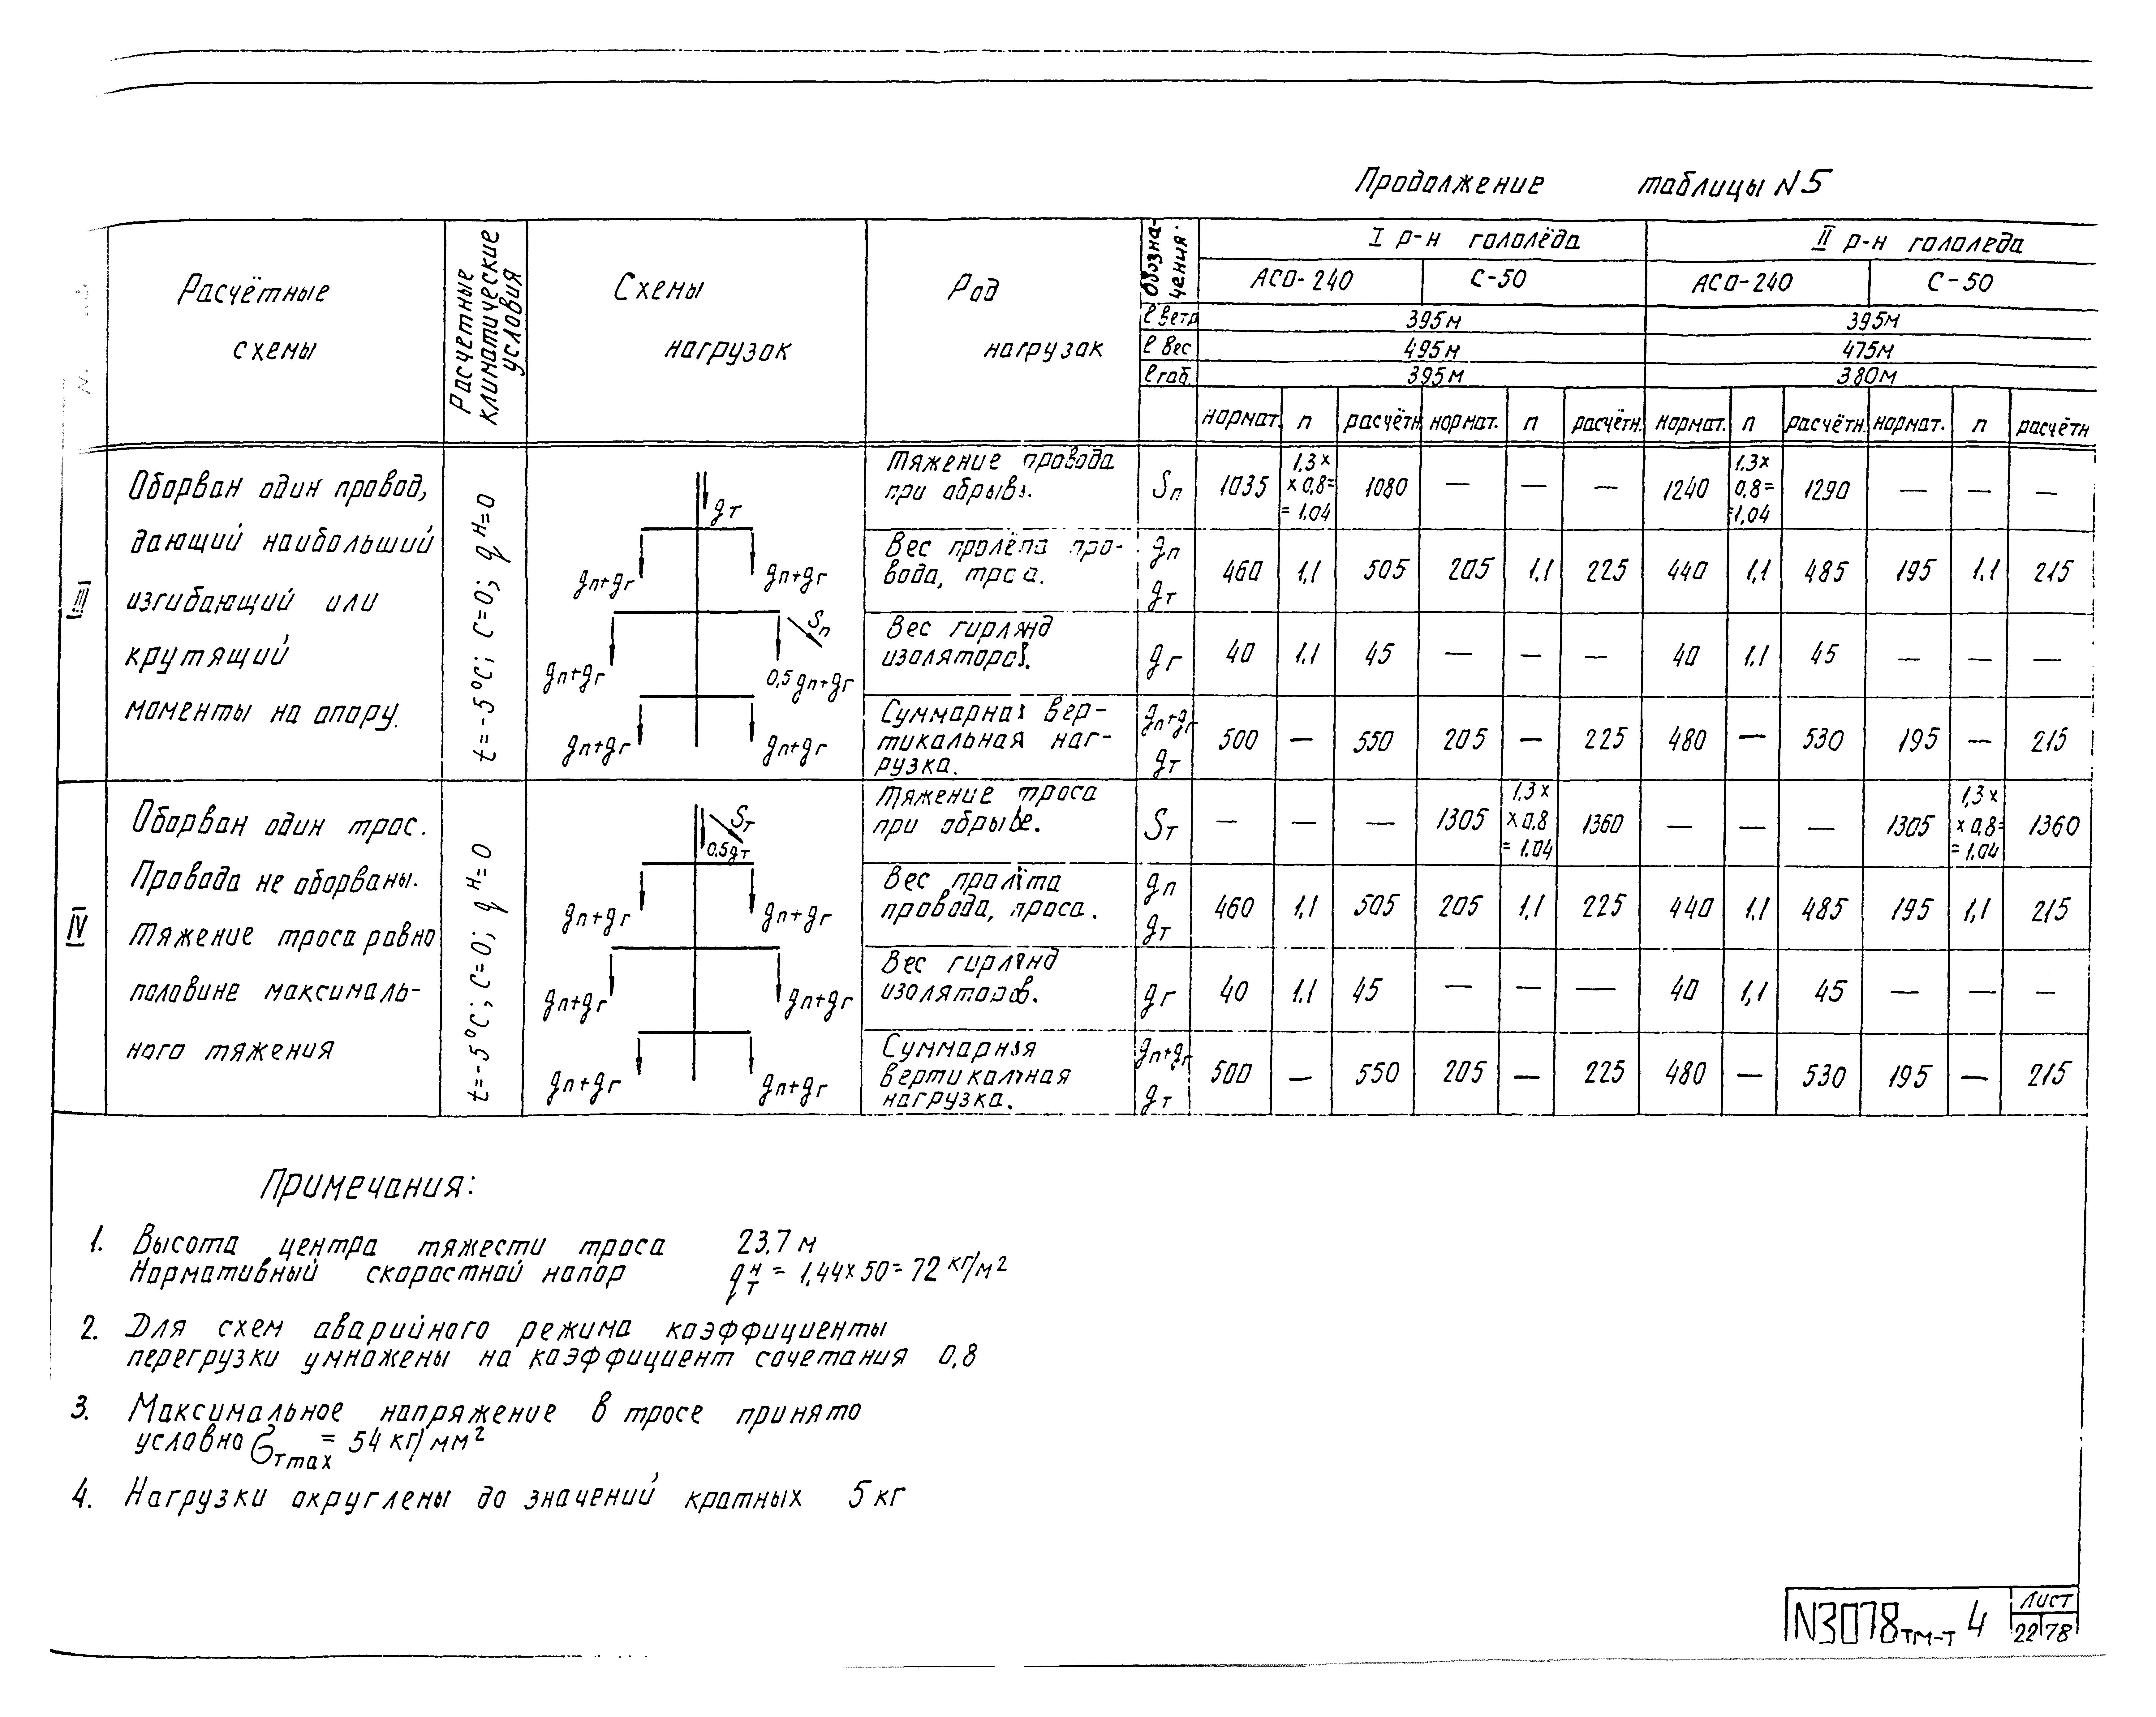 Продолжение таблицы N5
Расчётные схемы
Расчетные климатические условия
Схемы нагрузок
Род нагрузок
Обозна-чения.
I р-н гололёда
II р-н гололеда
АСО-240 С-50 АСО-240 С-50
ℓ ветр 395м 395м
ℓ вес 495м 475м
ℓ габ. 395м 380м
нормат. n расчётн. нормат. n расчётн. нормат. n расчётн. нормат. n расчётн
III
Оборван один провод,
дающий наибольший
изгибающий или
крутящий
моменты на опору.
t=-5°C; C=0; qᴴ=0
gт
gп+gг gп+gг
Sп
gп+gг 0,5gп+gг
gп+gг gп+gг
Тяжение провода при обрыве. Sп 1035 1,3× ×0,8= =1.04 1080 — — — 1240 1,3× 0,8= =1,04 1290 — — —
Вес пролёта про-вода, троса. gп gт 460 1.1 505 205 1.1 225 440 1,1 485 195 1.1 215
Вес гирлянд изоляторов. gг 40 1.1 45 — — — 40 1.1 45 — — —
Суммарная вер-тикальная наг-рузка. gп+gг gт 500 — 550 205 — 225 480 — 530 195 — 215
IV
Оборван один трос.
Провода не оборваны.
Тяжение троса равно
половине максималь-
ного тяжения
t=-5°C; C=0; qᴴ=0
Sт
0.5gт
gп+gг gп+gг
gп+gг gп+gг
gп+gг gп+gг
Тяжение троса при обрыве. Sт — — — 1305 1,3× ×0,8 =1.04 1360 — — — 1305 1,3× ×0,8= =1.04 1360
Вес пролёта провода, троса. gп gт 460 1.1 505 205 1.1 225 440 1.1 485 195 1,1 215
Вес гирлянд изоляторов. gг 40 1.1 45 — — — 40 1,1 45 — — —
Суммарная вертикальная нагрузка. gп+gг gт 500 — 550 205 — 225 480 — 530 195 — 215
Примечания:
1. Высота центра тяжести троса 23.7 м
Нормативный скоростной напор qᴴт = 1,44×50=72 кг/м²
2. Для схем аварийного режима коэффициенты
перегрузки умножены на коэффициент сочетания 0,8
3. Максимальное напряжение в тросе принято
условно бтmax = 54 кг/мм²
4. Нагрузки округлены до значений кратных 5 кг
N3078тм-т 4
Лист
22 78